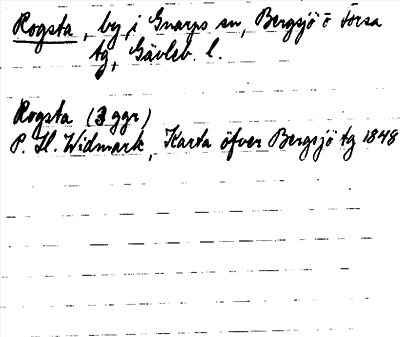 Rogsta, by i Gnarps sn, Bergsjö o Forsa
tg, Gävleb. l.
Rogsta (3 ggr)
P. H. Widmark, Karta öfver Bergsjö tg 1848